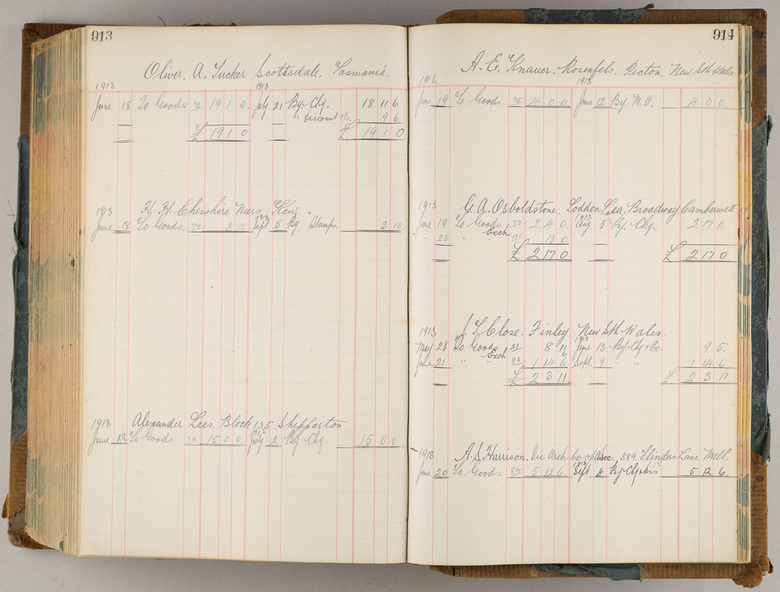 913
Oliver. A. Tucker Scottsdale. Tasmania.
1913 1913
June 18 To Goods 72 19 1 0 July 21 By Chq. 18 11 6
" Discount 9 6
£ 19 1 0 £ 19 1 0
1913 H. H. Cheshire Nurs. 
June 18 To Goods. 3 10 Sept 5 By Stamps. 3 10
1913 Alexander Lees. Block 135 Shepparton
June 18 To Goods 15 0 0 July 2 By Chq. 15 0 0
914
A. E. Knauer. Rosenfels. Picton. New Sth Wales
1913 1913
June 19 To Goods 75 4 0 0 June 12 By M.O. 4 0 0
1913 G. A. Osboldstone. Loddon Lea. Broadway Camberwell
June 19 To Goods 77 2 4 0 1913 Aug 5 By Chq. 2 17 0
" 23 " Exch 13 0
£ 2 17 0 £ 2 17 0
1913 Close. Finley New Sth Wales.
May 28 To Goods 8 11 1913 June 13 By Chq & Ex. 9 5
June 21 " Exch 6
" " 1 14 6 Sept. 9 " " 1 14 6
£ 2 3 11 £ 2 3 11
1913 A. S. Harrison. Vic Orch Co-op Assoc. 389 Flinders Lane Melb.
June 20 To Goods 5 12 6 Sept 4 By Chq 5 12 6